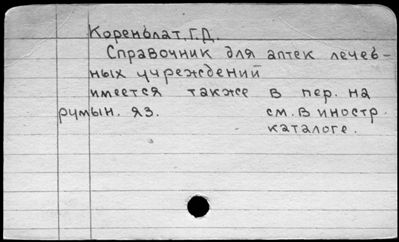 Коренблат, Г.Д.
Справочник для аптек лечеб-
ных учреждений
имеется также в пер. на
румын. яз. см. в иностр.
каталоге.